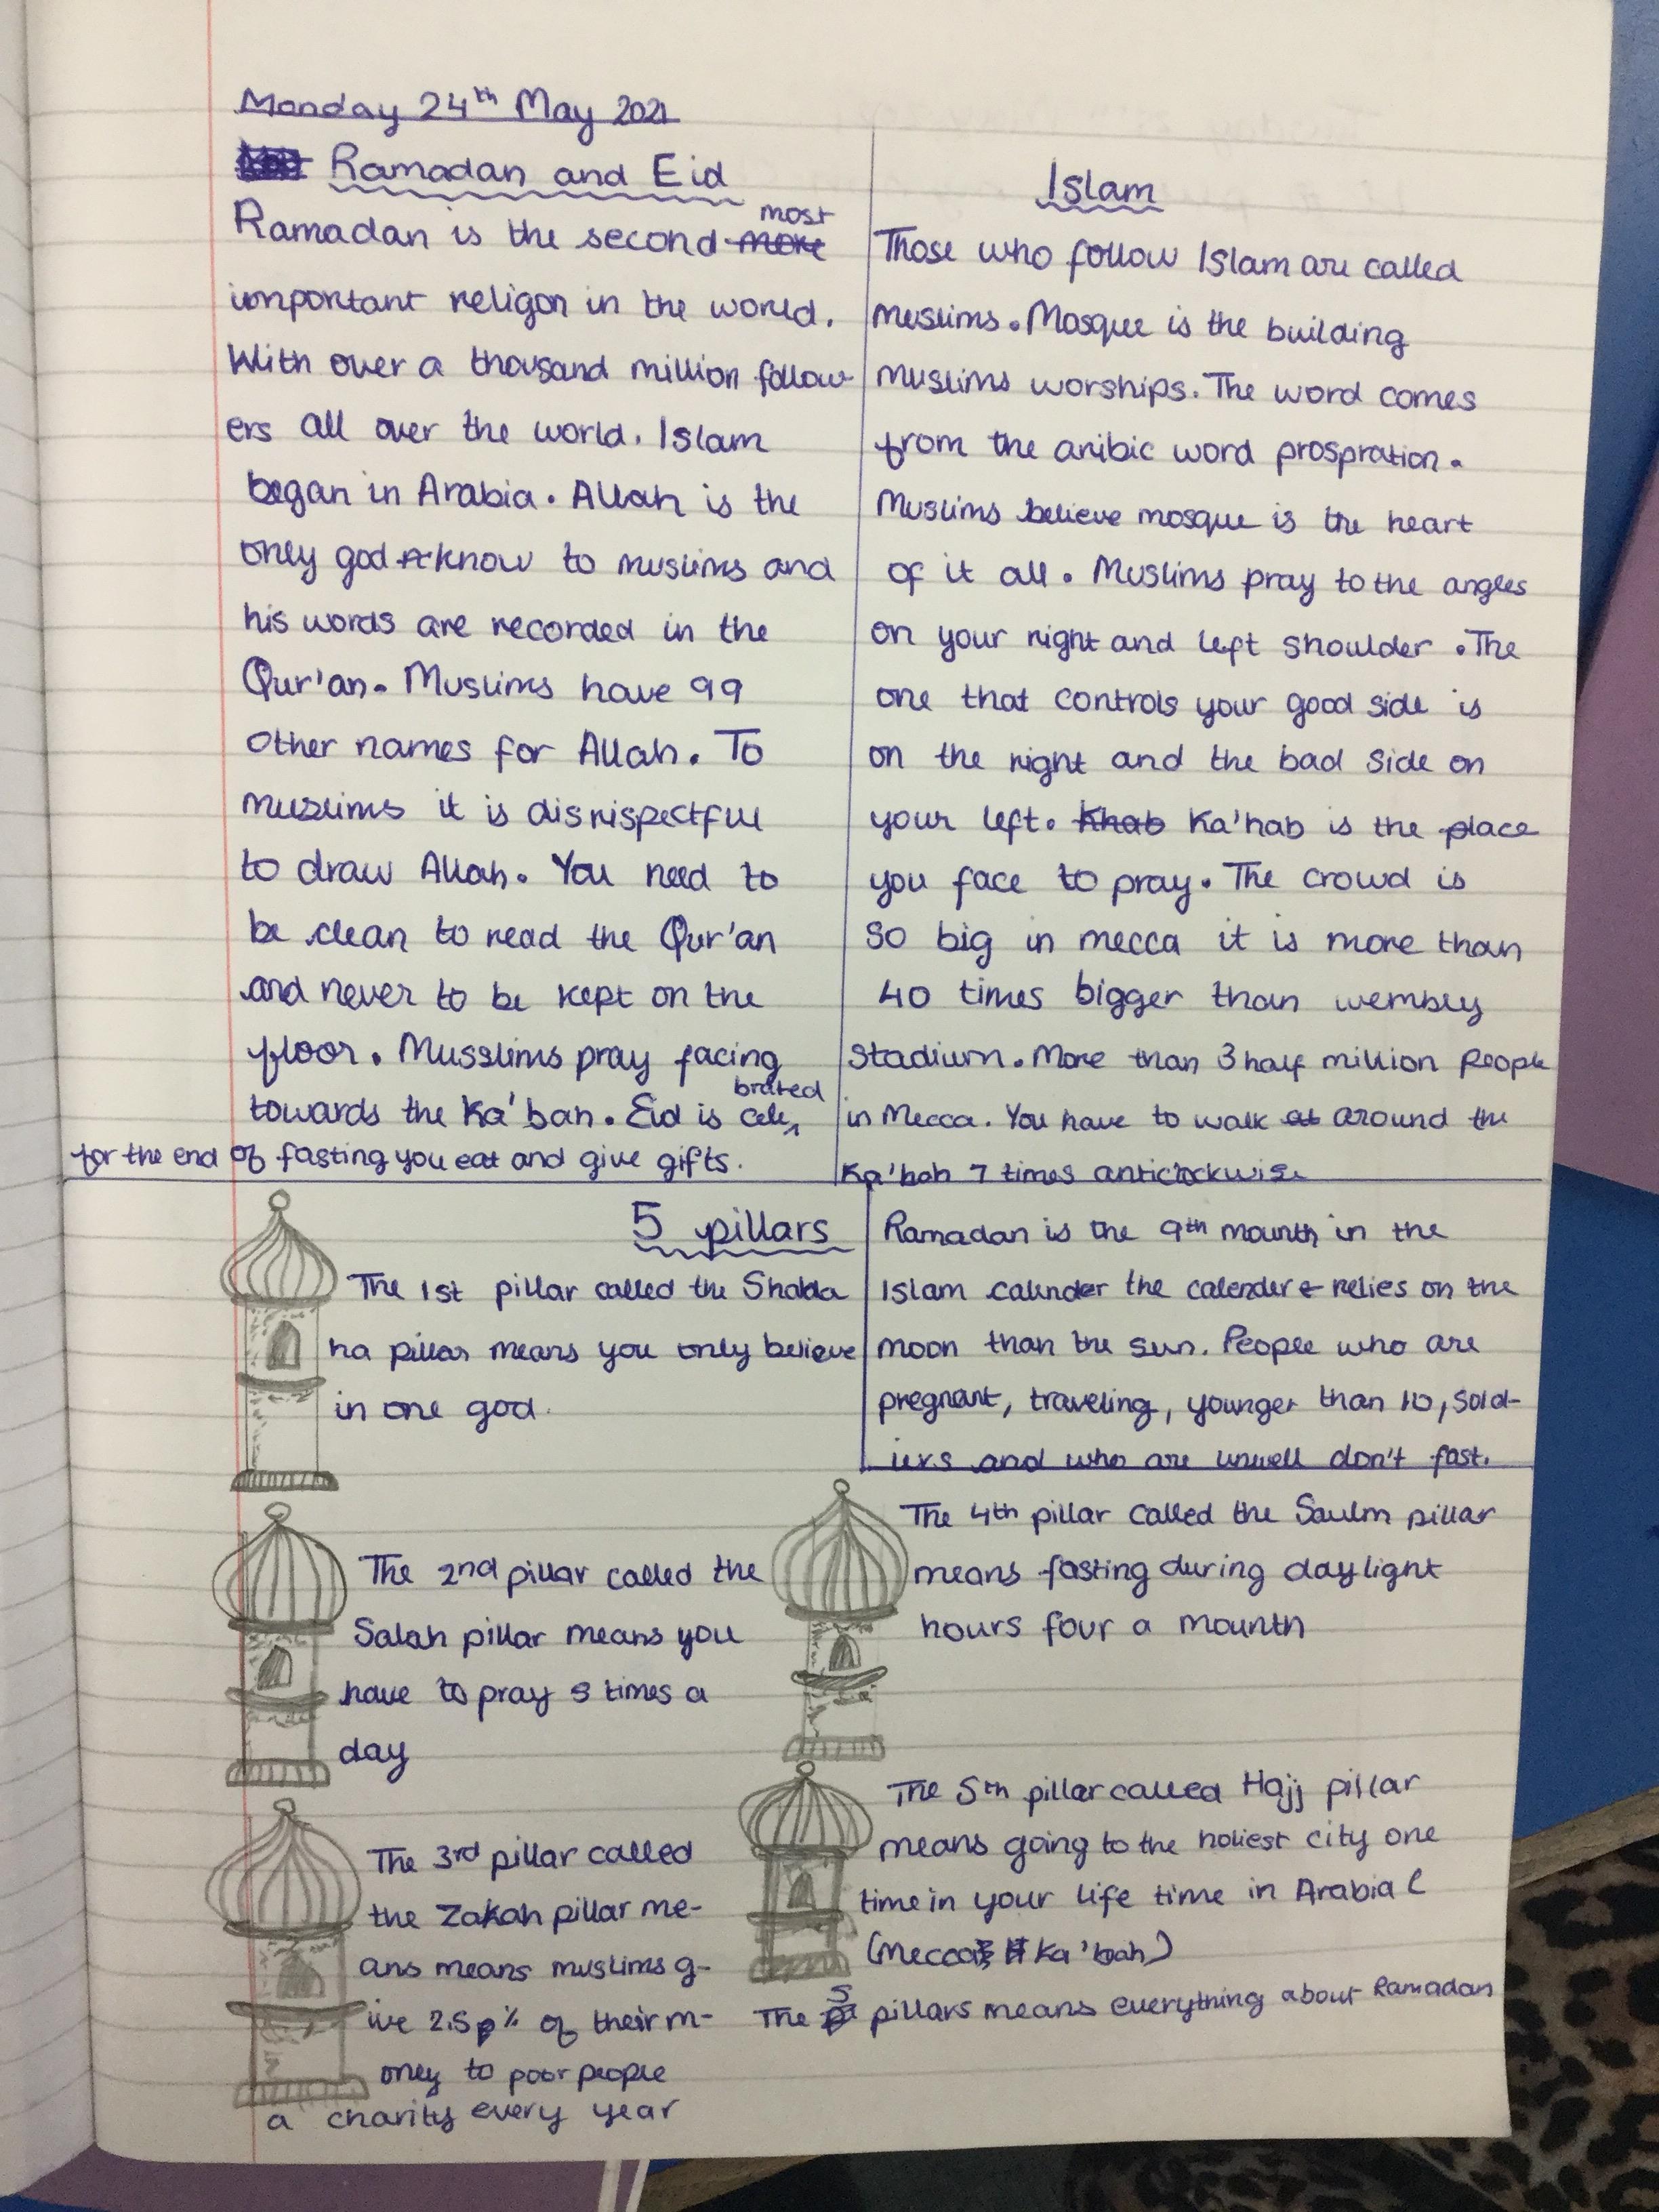 Monday 24th May 2021
Ramadan and Eid
Ramadan is the second more most
important religon in the world.
With over a thousand million follow-
ers all over the world. Islam
began in Arabia. Allah is the
only god know to muslims and
his words are recorded in the
Qur'an. Muslims have 99
other names for Allah. To
muslims it is disrispectful
to draw Allah. You need to
be clean to read the Qur'an
and never to be kept on the
floor. Musslims pray facing
towards the Ka'bah. Eid is celebrated
for the end of fasting you eat and give gifts.
Islam
Those who follow Islam are called
muslims. Mosque is the building
muslims worships. The word comes
from the aribic word prospration.
Muslims believe mosque is the heart
of it all. Muslims pray to the angles
on your right and left shoulder. The
one that controls your good side is
on the right and the bad side on
your left. Khab Ka'hab is the place
you face to pray. The crowd is
so big in mecca it is more than
40 times bigger than wembly
Stadium. More than 3 half million people
in Mecca. You have to walk at around the
Ka'bah 7 times anticlockwise
5 pillars
The 1st pillar called the Shahda
ha pillar means you only believe
in one god.
Ramadan is the 9th mounth in the
Islam calinder the calender relies on the
moon than the sun. People who are
pregnant, traveling, younger than 10, sold-
iers and who are unwell don't fast.
The 2nd pillar called the
Salah pillar means you
have to pray 5 times a
day
The 3rd pillar called
the Zakah pillar me-
ans means muslims g-
ive 2.5p% of their m-
oney to poor people
a charity every year
The 4th pillar called the Saulm pillar
means fasting during daylight
hours four a mounth
The 5th pillar called Hajj pillar
means going to the holiest city one
time in your life time in Arabia (
(Mecca Ka'bah)
The 5 pillars means everything about Ramadan